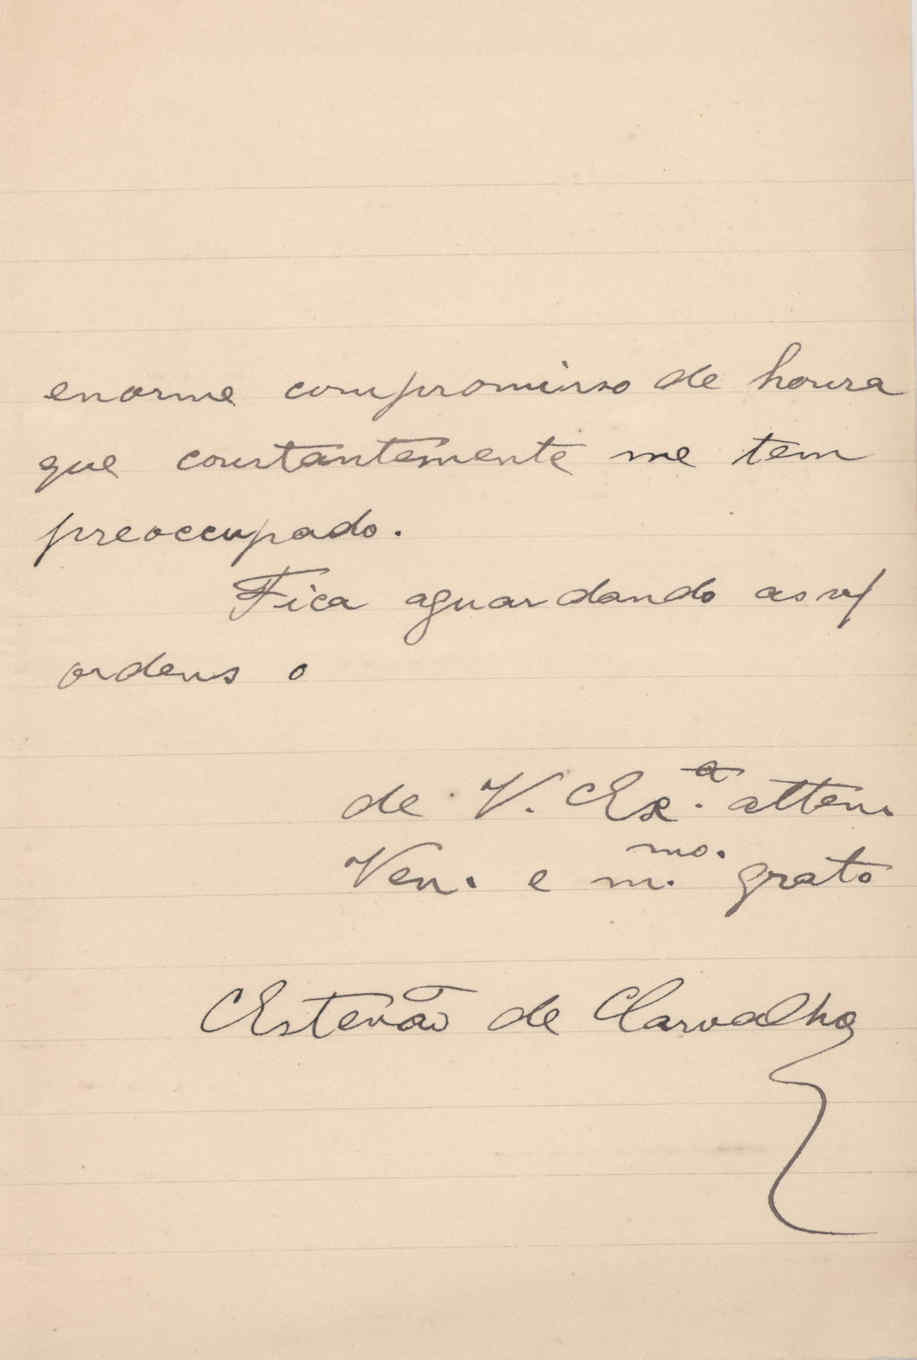 enorme compromisso de honra
que constantemente me tem
preoccupado.
Fica aguardando as v/
ordens o
de V. Ex.ª atten.
Ven. e m.mo. grato
Estevão de Carvalho